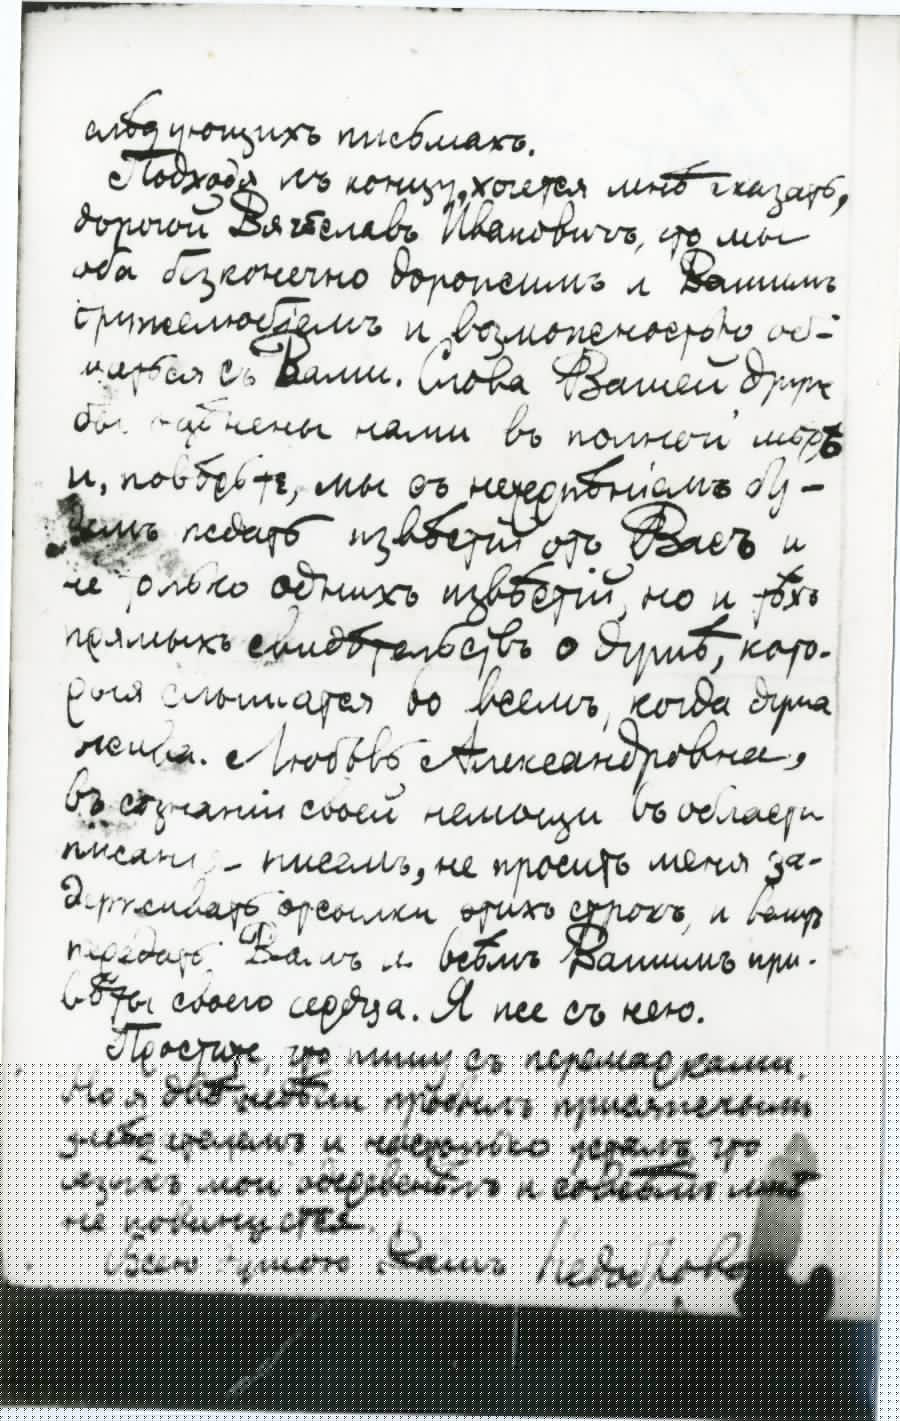 слѣдующихъ письмахъ.
Подходя къ концу, хочется мнѣ сказать,
дорогой Вячеславъ Ивановичъ, что мы
оба безконечно дорожимъ и Вашимъ
дружелюбіемъ и возможностью об-
щаться съ Вами. Слова Вашей друж
бы оцѣнены нами въ полной мѣрѣ
и, повѣрьте, мы съ нетерпѣніемъ бу-
демъ ждать извѣстій отъ Васъ и
не только однихъ извѣстій, но и тѣхъ
прямыхъ свидѣтельствъ о душѣ, кото-
рыя слышатся во всемъ, когда душа
жива. Любовь Александровна,
въ сознаніи своей немощи въ области
писанія писемъ, не проситъ меня за-
держивать отсылки этихъ строкъ, и велитъ
передать Вамъ и всѣмъ Вашимъ при-
вѣты своего сердца. Я же съ нею.
Простите, что пишу съ перемарками.
Но я двѣ недѣли пробылъ присяжнымъ
засѣдателемъ и настолько усталъ, что
языкъ мой одеревенѣлъ и совсѣмъ мнѣ
не повинуется.
Всею душою Вашъ Недоброво